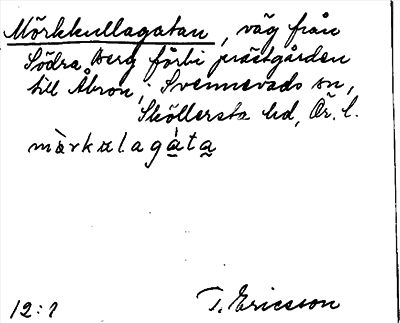 Mörkkullagatan, väg från
Södra Berg förbi prästgården
till Åbron, Svennevads sn,
Sköllersta hd, Ör. l.
mòrkalagáta
12:1 T. Ericsson